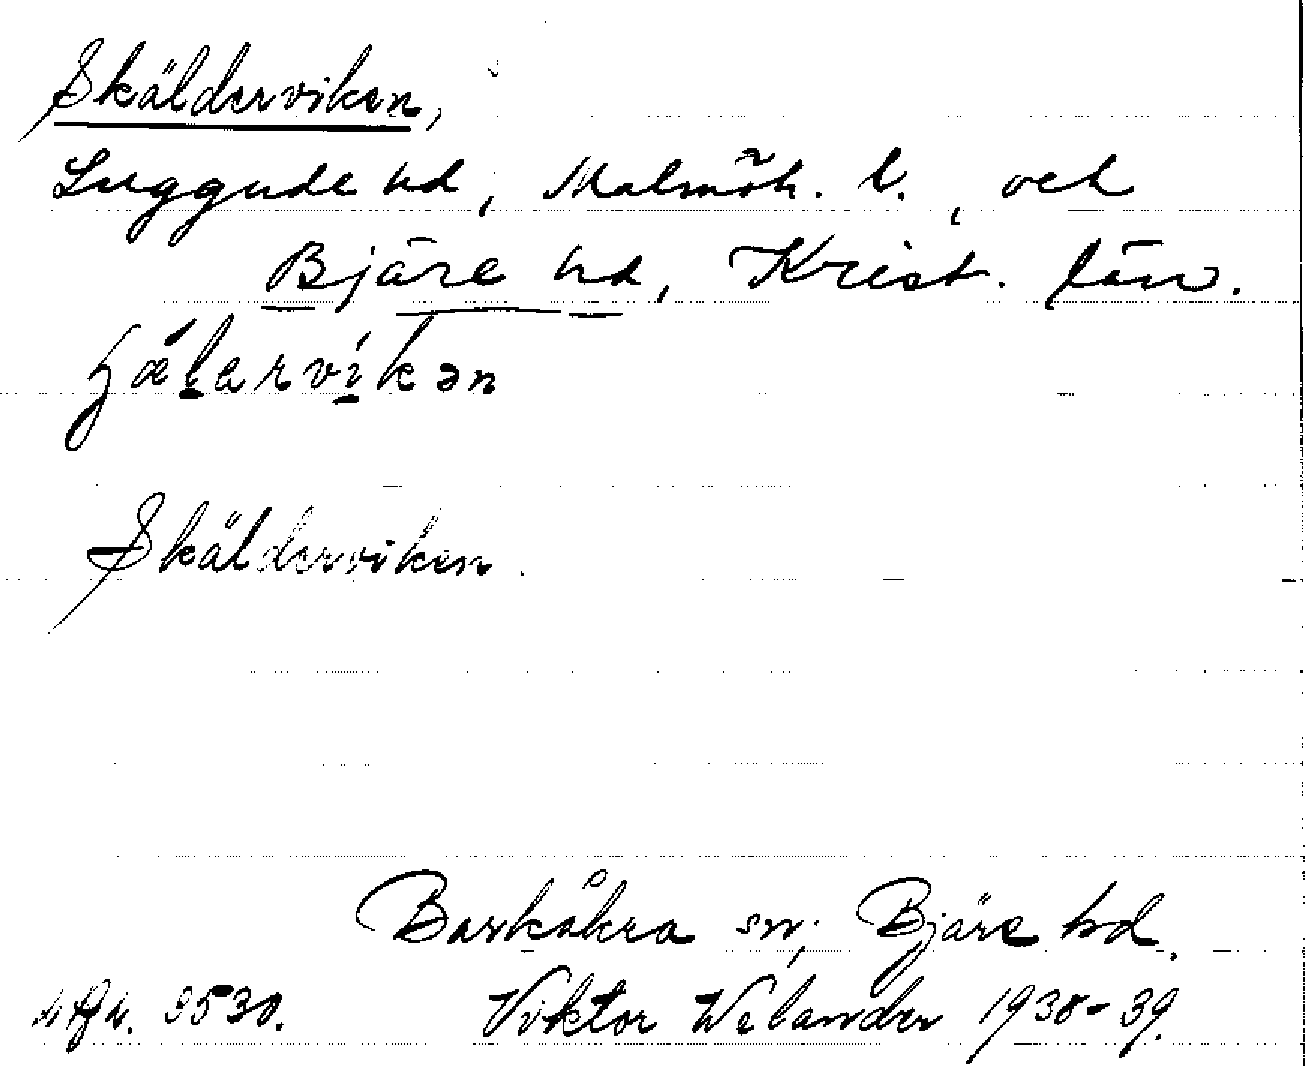 Skälderviken,
Luggude hd, Malmöh. l., och
Bjäre hd, Krist. län.
Skälderviken.
Barkåkra sn; Bjäre hd.
3530. Viktor Welander 1938-39.